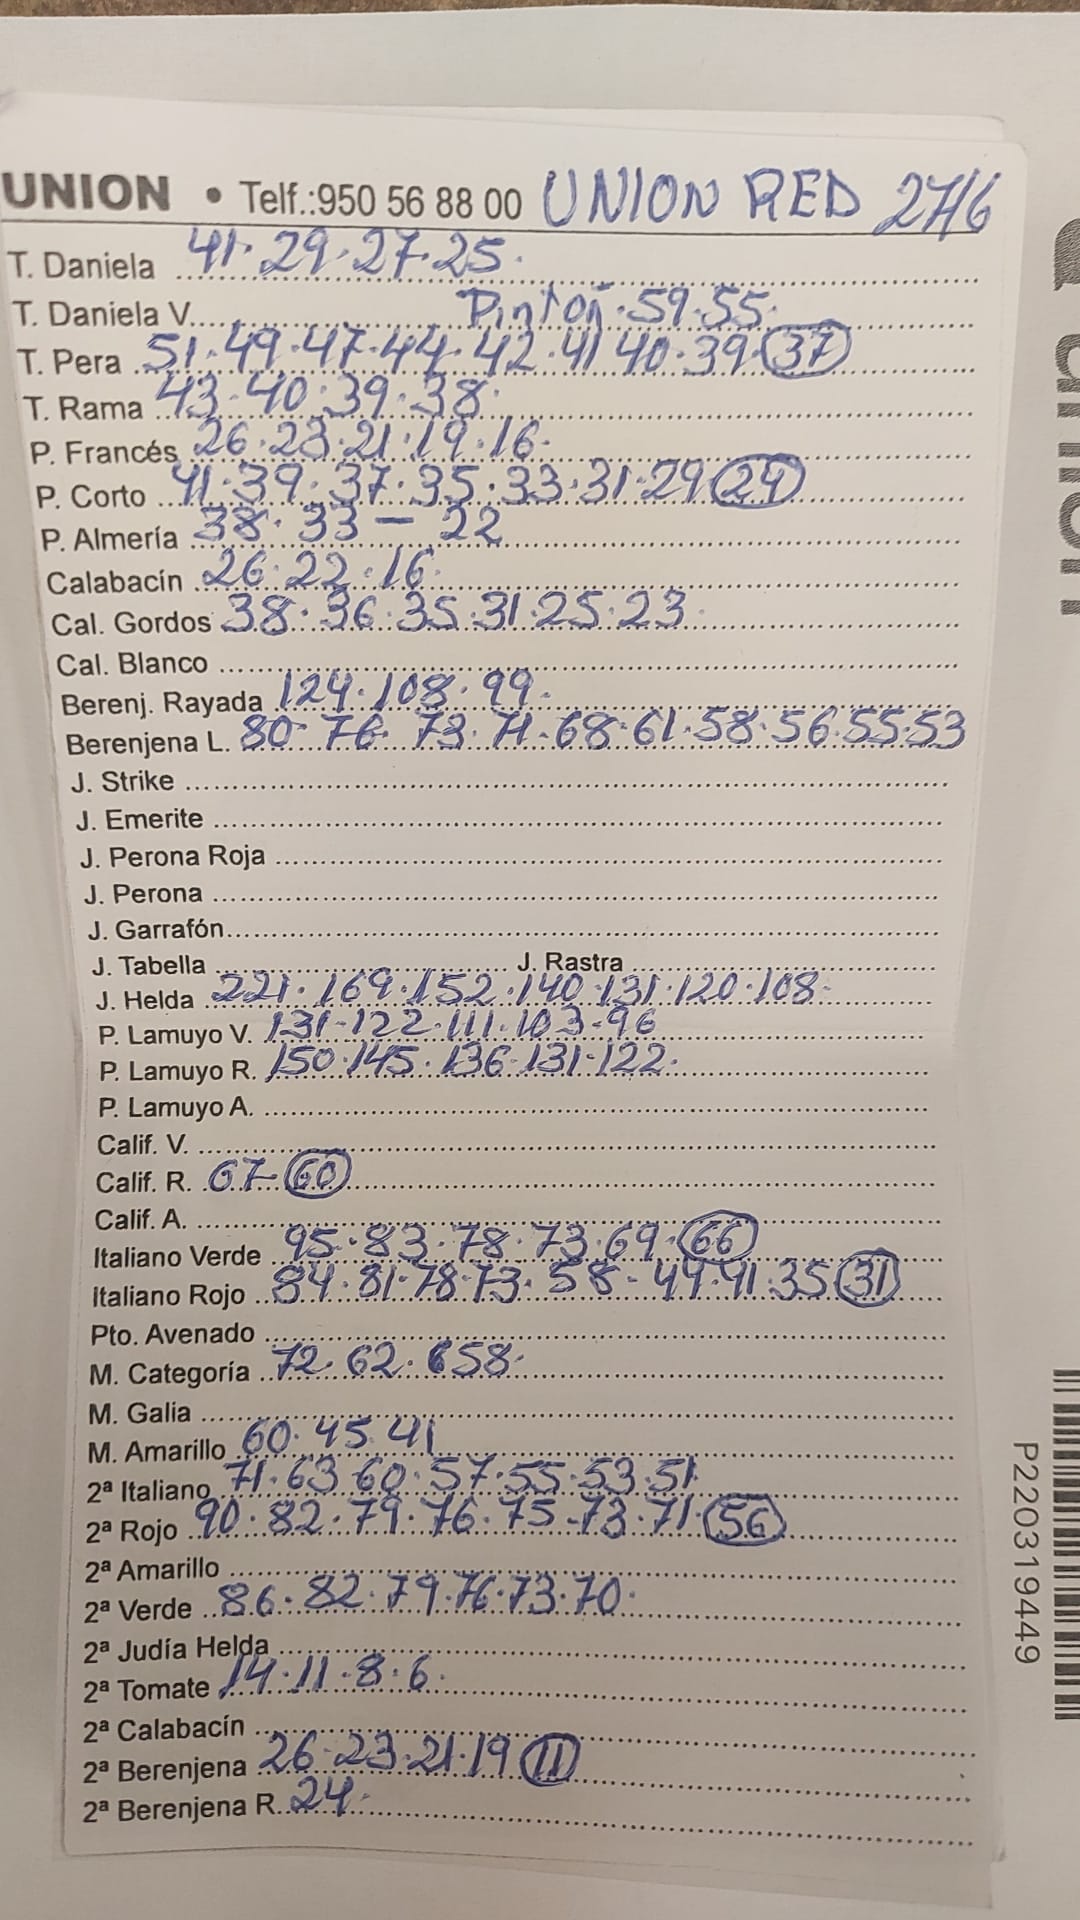 UNION • Telf.:950 56 88 00 UNION RED 27/6
T. Daniela 41·29·27·25·
T. Daniela V. Pinton·59·55·
T. Pera 51·49·47·44·42·41 40·39·37
T. Rama 43·40·39·38·
P. Francés 26·23·21·19·16·
P. Corto 41·39·37·35·33·31·29
P. Almería 38·33 - 22
Calabacín 26·22·16·
Cal. Gordos 38·36·35·31·25·23·
Cal. Blanco
Berenj. Rayada 124·108·99·
Berenjena L. 80·76·73·71·68·61·58·56·55·53
J. Strike
J. Emerite
J. Perona Roja
J. Perona
J. Garrafón
J. Tabella J. Rastra
J. Helda 221·169·152·140·131·120·108·
P. Lamuyo V. 131-122·111·103-96
P. Lamuyo R. 150·145·136·131·122·
P. Lamuyo A.
Calif. V.
Calif. R. 67-60
Calif. A.
Italiano Verde 95·83·78·73·69·66
Italiano Rojo 84·81·78·73·58-49·41·35 31
Pto. Avenado
M. Categoría 72·62·58·
M. Galia
M. Amarillo 60·45 41
2ª Italiano 71·63 60·57·55·53·51
2ª Rojo 90·82·79·76·75-73·71·56
2ª Amarillo
2ª Verde 86·82·79·76·73·70·
2ª Judía Helda
2ª Tomate 14·11·8·6·
2ª Calabacín
2ª Berenjena 26·23·21·19 11
2ª Berenjena R. 24·
union
P220319449